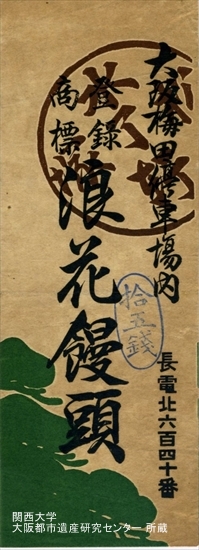 大阪梅田停車場内
登録
商標
浪花饅頭
拾五銭
長電北六百四十番
関西大学
大阪都市遺産研究センター 所蔵